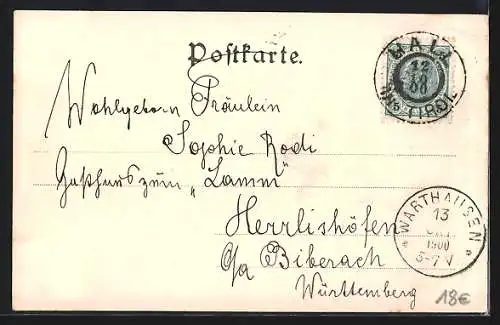 Postkarte.
HALL
12
00
TIROL
Wohlgeborn Fräulein
Sophie Rodi
Gasthaus zum „Lamm“
Herrlishöfen
o/a Biberach
Württemberg
WARTHAUSEN
13
1900
5-7 V
18€